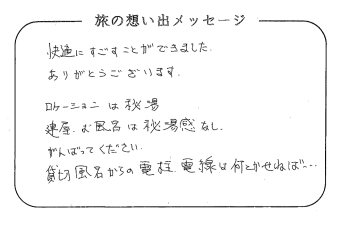 旅の想い出メッセージ
快適にすごすことができました.
ありがとうございます.
ロケーションは秘湯
建屋.お風呂は秘湯感なし.
がんばってください.
貸切風呂からの電柱.電線は何とかせねば…